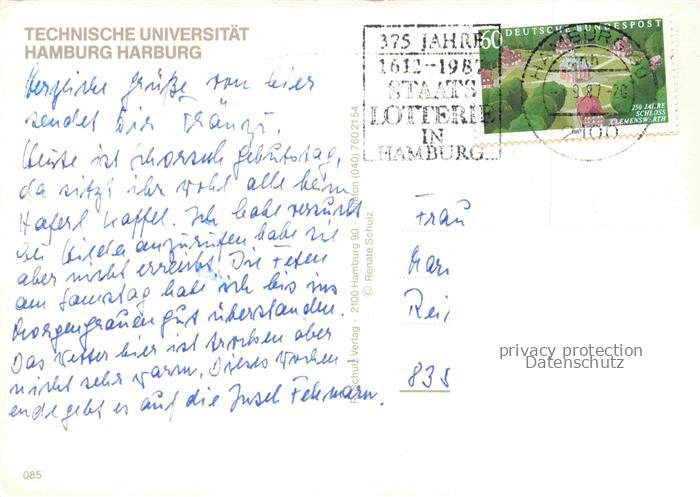 TECHNISCHE UNIVERSITÄT
HAMBURG HARBURG
Herzliche Grüße von hier
sendet Dir Fränzi.
Heute ist Schorsch Geburtstag,
da sitzt ihr wohl alle beim
Haferl Kaffee. Ich habe versucht
bei Hilda anzurufen habe sie
aber nicht erreicht. Die Feten
am Samstag habe ich bis ins
Morgengrauen gut überstanden.
Das Wetter hier ist trocken aber
nicht sehr warm. Dieses Wochen-
ende geht es auf die Insel Fehmarn.
085
Schulz Verlag · 2100 Hamburg 90 · Telefon (040) 760 2154
© Renate Schulz
375 JAHRE
1612-1987
STAATS
LOTTERIE
IN
HAMBURG
60 DEUTSCHE BUNDESPOST
250 JAHRE
SCHLOSS
CLEMENSWERTH
1987
HAMBURG
2100
Frau
Mari
Rei
835
privacy protection
Datenschutz